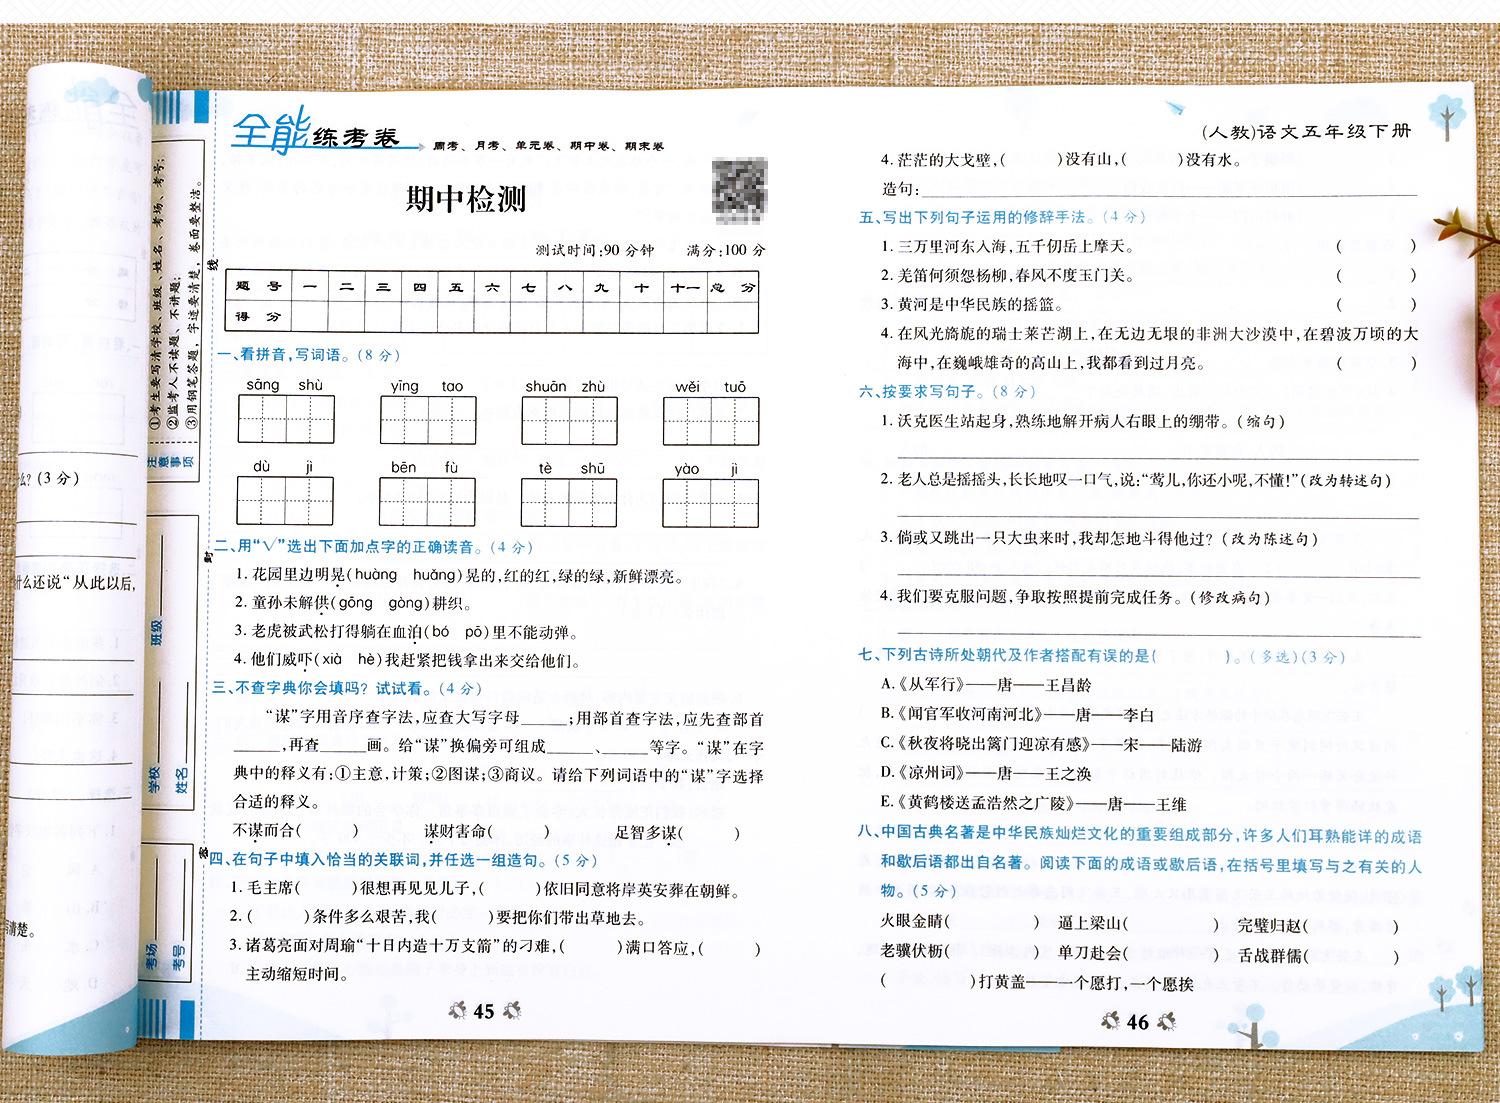 全能练考卷 周考、月考、单元卷、期中卷、期末卷
期中检测
测试时间:90分钟 满分:100分
题号 一 二 三 四 五 六 七 八 九 十 十一 总分
得分
一、看拼音,写词语。(8分)
sāng shù yīng tao shuān zhù wěi tuō
dù jì bēn fù tè shū yào jì
二、用“√”选出下面加点字的正确读音。(4分)
1.花园里边明晃(huàng huǎng)晃的,红的红,绿的绿,新鲜漂亮。
2.童孙未解供(gōng gòng)耕织。
3.老虎被武松打得躺在血泊(bó pō)里不能动弹。
4.他们威吓(xià hè)我赶紧把钱拿出来交给他们。
三、不查字典你会填吗?试试看。(4分)
“谋”字用音序查字法,应查大写字母____;用部首查字法,应先查部首
______,再查______画。给“谋”换偏旁可组成______、______等字。“谋”在字
典中的释义有:①主意,计策;②图谋;③商议。请给下列词语中的“谋”字选择
合适的释义。
不谋而合( ) 谋财害命( ) 足智多谋( )
四、在句子中填入恰当的关联词,并任选一组造句。(5分)
1.毛主席( )很想再见见儿子,( )依旧同意将岸英安葬在朝鲜。
2.( )条件多么艰苦,我( )要把你们带出草地去。
3.诸葛亮面对周瑜“十日内造十万支箭”的刁难,( )满口答应,( )
主动缩短时间。
45
(人教)语文五年级下册
4.茫茫的大戈壁,( )没有山,( )没有水。
造句:
五、写出下列句子运用的修辞手法。(4分)
1.三万里河东入海,五千仞岳上摩天。 ( )
2.羌笛何须怨杨柳,春风不度玉门关。 ( )
3.黄河是中华民族的摇篮。 ( )
4.在风光旖旎的瑞士莱芒湖上,在无边无垠的非洲大沙漠中,在碧波万顷的大
海中,在巍峨雄奇的高山上,我都看到过月亮。 ( )
六、按要求写句子。(8分)
1.沃克医生站起身,熟练地解开病人右眼上的绷带。(缩句)
2.老人总是摇摇头,长长地叹一口气,说:“莺儿,你还小呢,不懂!”(改为转述句)
3.倘或又跳出一只大虫来时,我却怎地斗得他过?(改为陈述句)
4.我们要克服问题,争取按照提前完成任务。(修改病句)
七、下列古诗所处朝代及作者搭配有误的是( )。(多选)(3分)
A.《从军行》——唐——王昌龄
B.《闻官军收河南河北》——唐——李白
C.《秋夜将晓出篱门迎凉有感》——宋——陆游
D.《凉州词》——唐——王之涣
E.《黄鹤楼送孟浩然之广陵》——唐——王维
八、中国古典名著是中华民族灿烂文化的重要组成部分,许多人们耳熟能详的成语
和歇后语都出自名著。阅读下面的成语或歇后语,在括号里填写与之有关的人
物。(5分)
火眼金睛( ) 逼上梁山( ) 完璧归赵( )
老骥伏枥( ) 单刀赴会( ) 舌战群儒( )
( )打黄盖——一个愿打,一个愿挨
46
注意事项
①考生要写清学校、班级、姓名、考场、考号;
②监考人不读题、不讲题;
③用钢笔答题,字迹要清楚,卷面要整洁。
学校 班级
姓名
考场
考号
密 封 线
么?(3分)
什么还说“从此以后,
清楚。